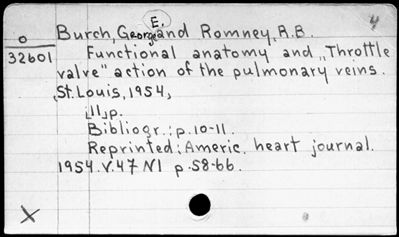 E.
4
O Burch, George and Romney, R.B.
32601 Functional anatomy and "Throttle
valve" action of the pulmonary veins.
St. Louis, 1954,
11 p.
Bibliogr.: p.10-11.
Reprinted: Americ. heart journal.
1954.V.47 N1 p.58-66.
X